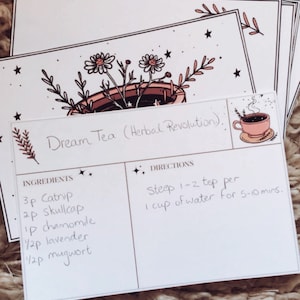 Dream Tea (Herbal Revolution).
INGREDIENTS
3p Catnip
2p skullcap
1p chamomile
1/2p lavender
1/2p mugwort
DIRECTIONS
Steep 1-2 tsp per
1 cup of water for 5-10 mins.